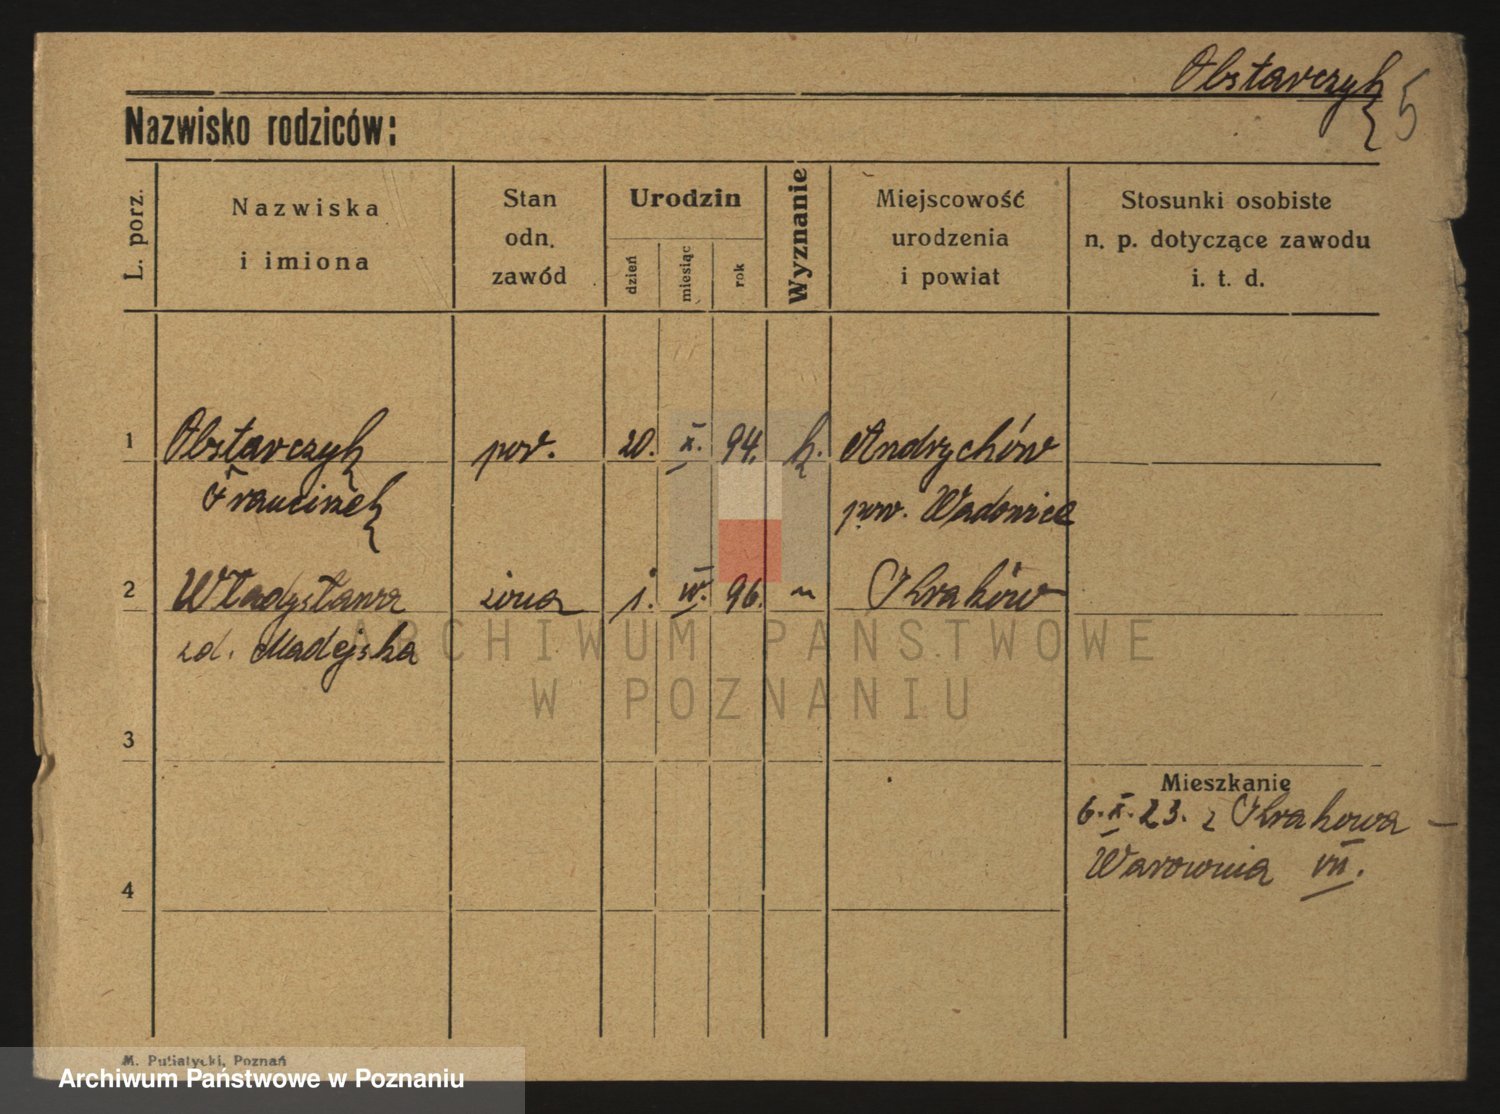 Obstarczyk
5
Nazwisko rodziców:
L. porz.
Nazwiska
i imiona
Stan
odn.
zawód
Urodzin
dzień
miesiąc
rok
Wyznanie
Miejscowość
urodzenia
i powiat
Stosunki osobiste
n. p. dotyczące zawodu
i. t. d.
1 Obstarczyk por. 20. X. 94. k. Andrychów
Franciszek pow. Wadowice
2 Władysława żona 1. IV. 96. " Kraków
zd. Madejska
ARCHIWUM PAŃSTWOWE
W POZNANIU
3
Mieszkanie
6. X. 23. z Krakowa –
Warownia VII.
4
M. Putiatycki, Poznań
Archiwum Państwowe w Poznaniu